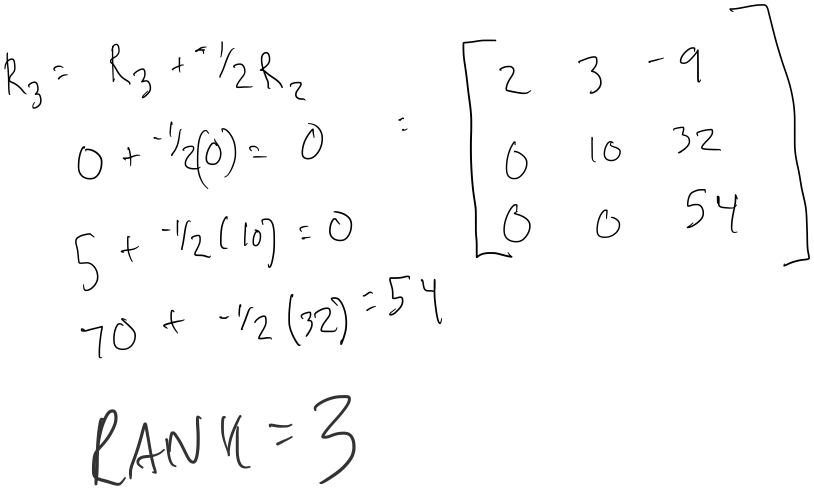 R₃ = R₃ + -1/2 R₂
0 + -1/2(0) = 0
5 + -1/2(10) = 0
70 + -1/2(32) = 54
=
2 3 -9
0 10 32
0 0 54
RANK = 3